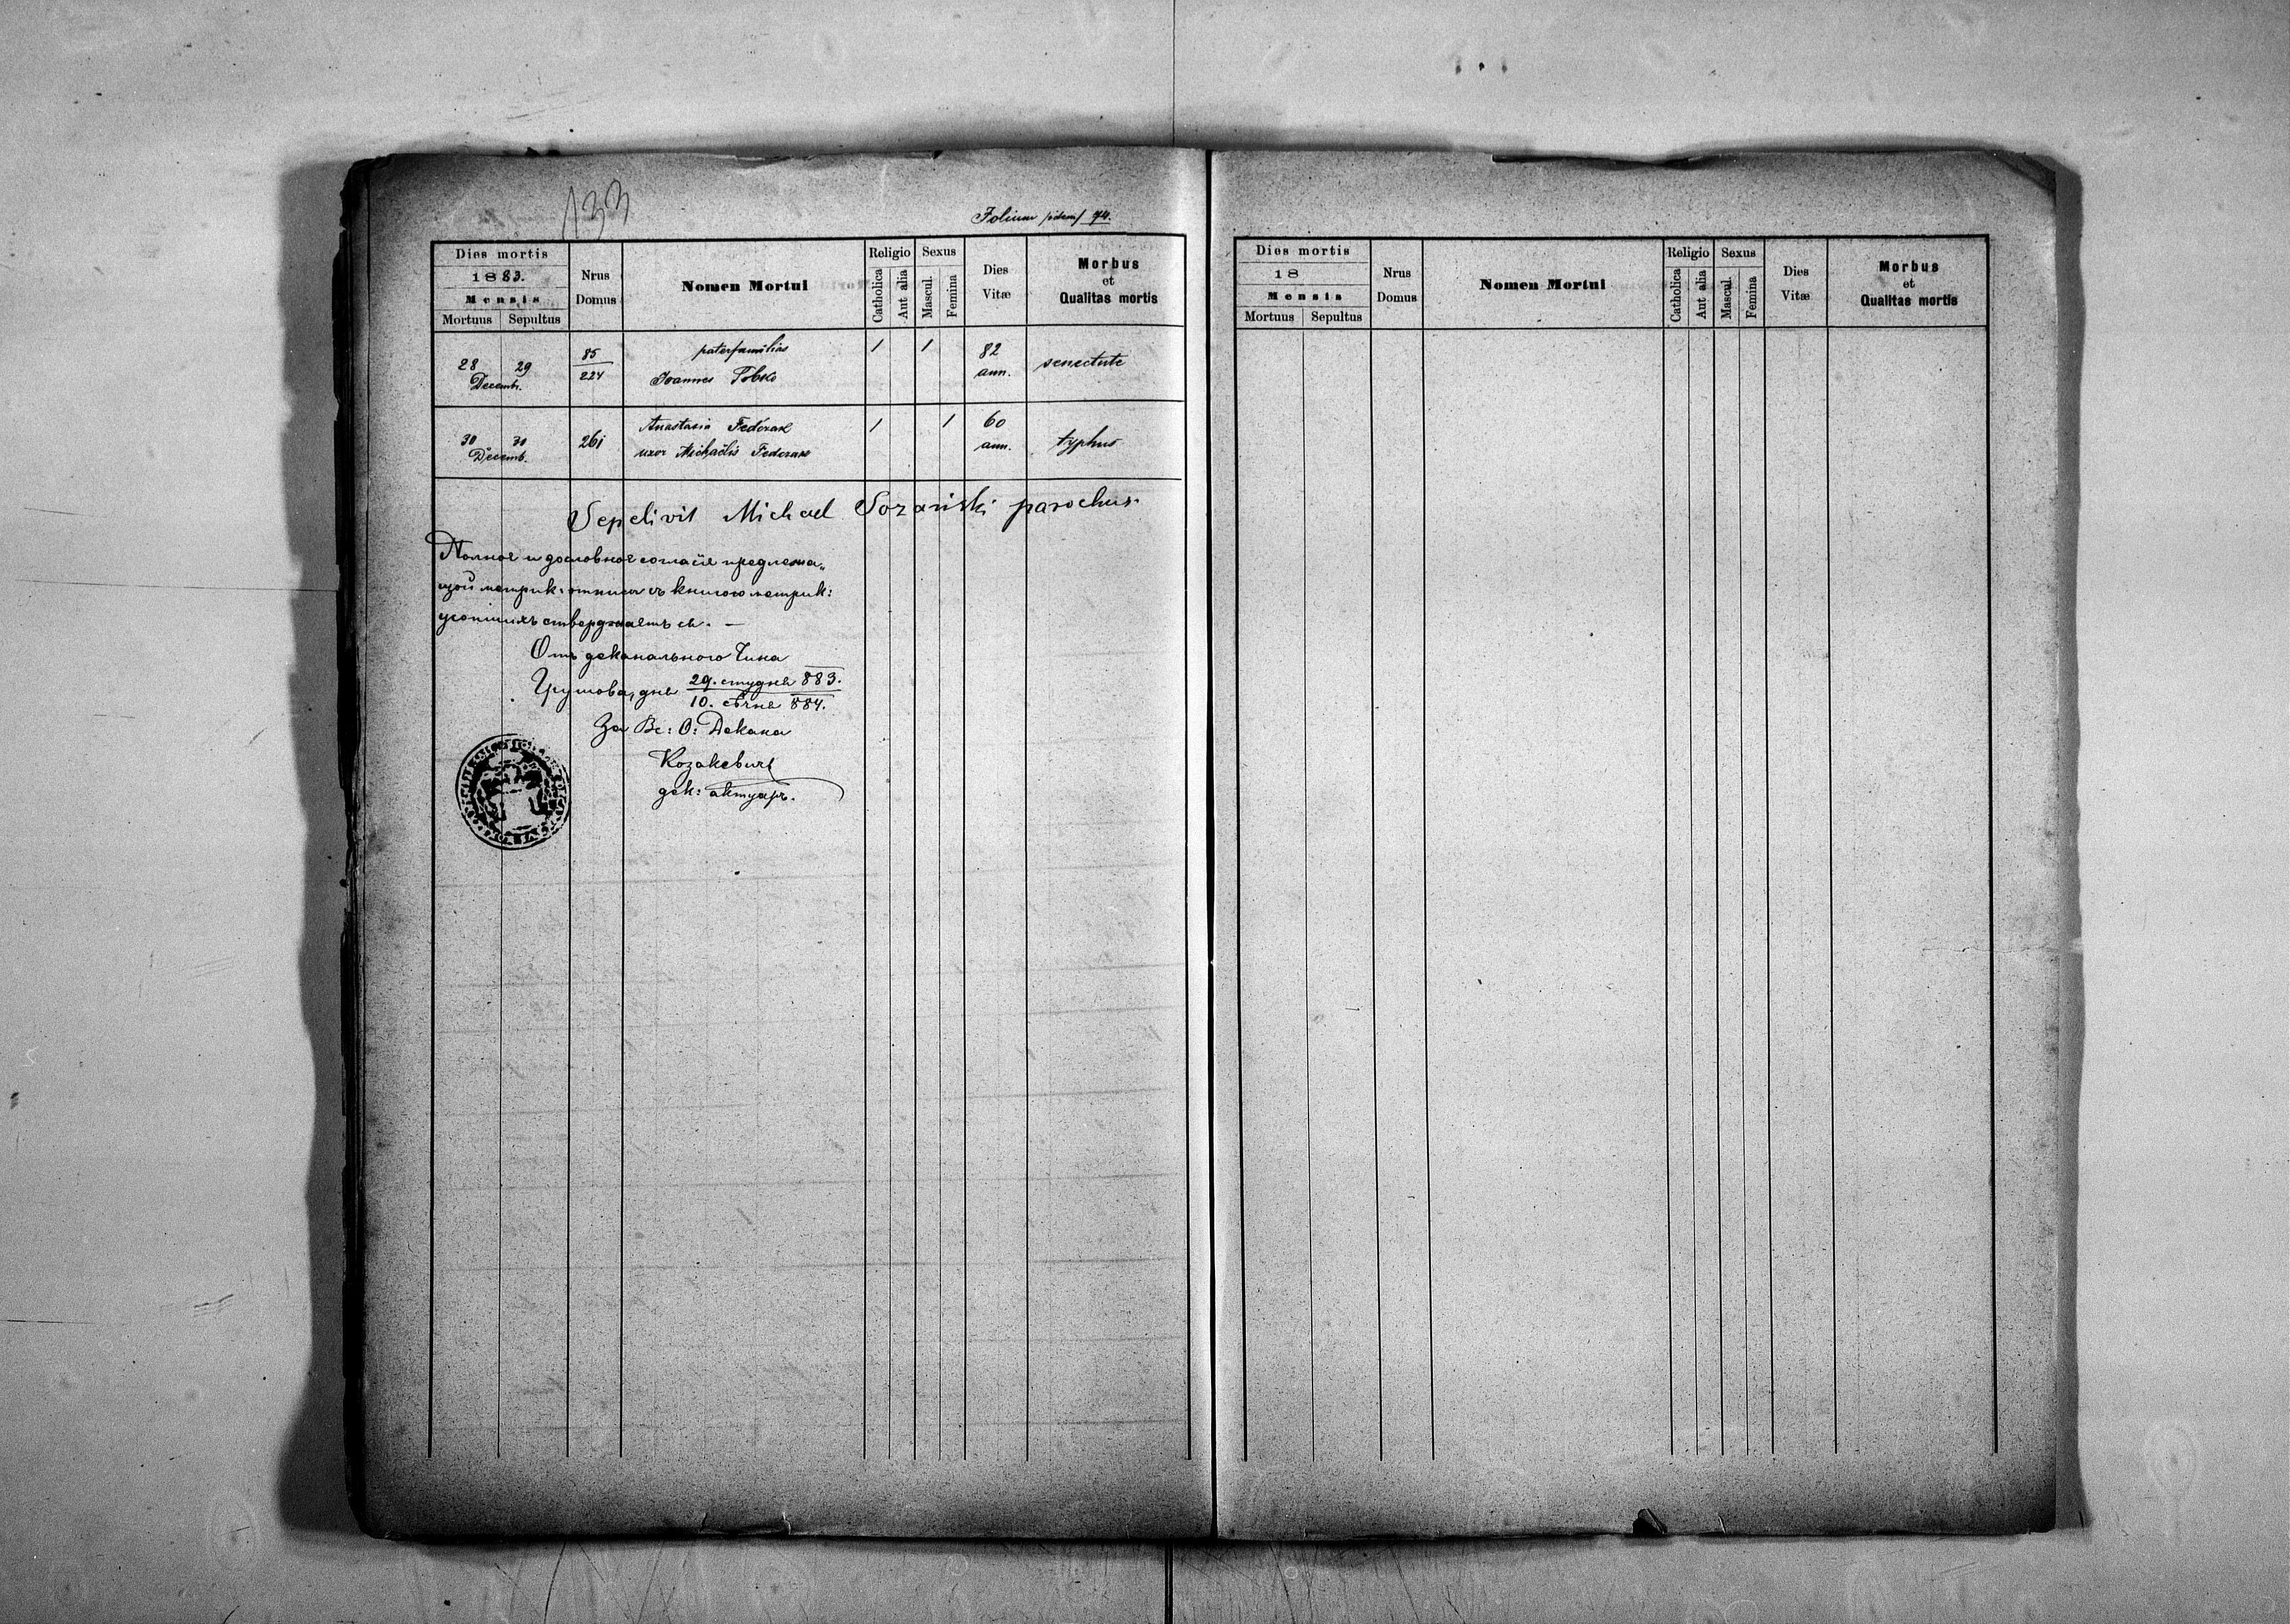 133
Folium 74.
Dies mortis
1883.
Mensis
Mortuus Sepultus
Nrus Domus
Nomen Mortui
Religio
Catholica
Aut alia
Sexus
Mascul.
Femina
Dies Vitæ
Morbus
et
Qualitas mortis
28 29
Decemb.
85
224
paterfamilias
Joannes
1 1
82
ann.
senectute
30 30
Decemb.
261
Anastasia Fedorak
uxor Michaëlis Fedorak
1 1
60
ann.
typhus
Sepelivit Michael Sozański parochus
Полное и дословное согласіе предлежа„
щой метрик: отписи съ книгою метрик:
усопшихъ стверджаеть ся. —
Отъ деканального Чина
Грушова, дня 29. студня 883.
10. сѣчня 884.
За Вс: О: Декана
Козакевичъ
дек: актуаръ.
Dies mortis
18
Mensis
Mortuus Sepultus
Nrus Domus
Nomen Mortui
Religio
Catholica
Aut alia
Sexus
Mascul.
Femina
Dies Vitæ
Morbus
et
Qualitas mortis